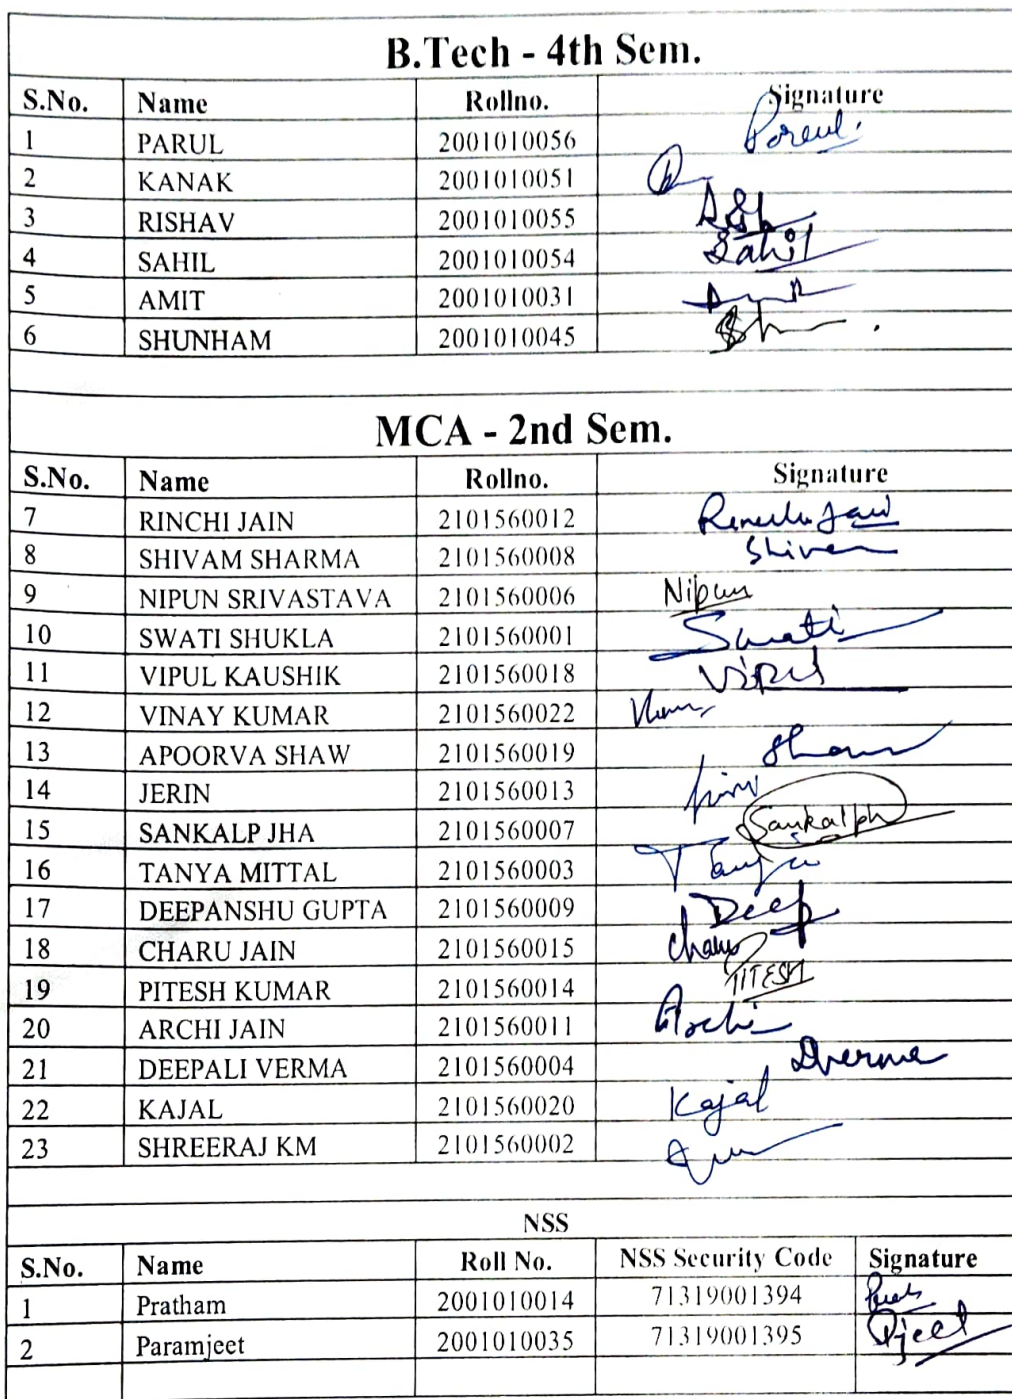 B.Tech - 4th Sem.
S.No. Name Rollno. Signature
1 PARUL 2001010056
2 KANAK 2001010051
3 RISHAV 2001010055
4 SAHIL 2001010054 Sahil
5 AMIT 2001010031
6 SHUNHAM 2001010045
MCA - 2nd Sem.
S.No. Name Rollno. Signature
7 RINCHI JAIN 2101560012
8 SHIVAM SHARMA 2101560008
9 NIPUN SRIVASTAVA 2101560006 Nipun
10 SWATI SHUKLA 2101560001 Swati
11 VIPUL KAUSHIK 2101560018 Vipul
12 VINAY KUMAR 2101560022
13 APOORVA SHAW 2101560019
14 JERIN 2101560013
15 SANKALP JHA 2101560007
16 TANYA MITTAL 2101560003 Tanya
17 DEEPANSHU GUPTA 2101560009 Deep
18 CHARU JAIN 2101560015 Charu
19 PITESH KUMAR 2101560014 PITESH
20 ARCHI JAIN 2101560011 Archi
21 DEEPALI VERMA 2101560004 DVerma
22 KAJAL 2101560020 Kajal
23 SHREERAJ KM 2101560002
NSS
S.No. Name Roll No. NSS Security Code Signature
1 Pratham 2001010014 71319001394
2 Paramjeet 2001010035 71319001395 Pjeet